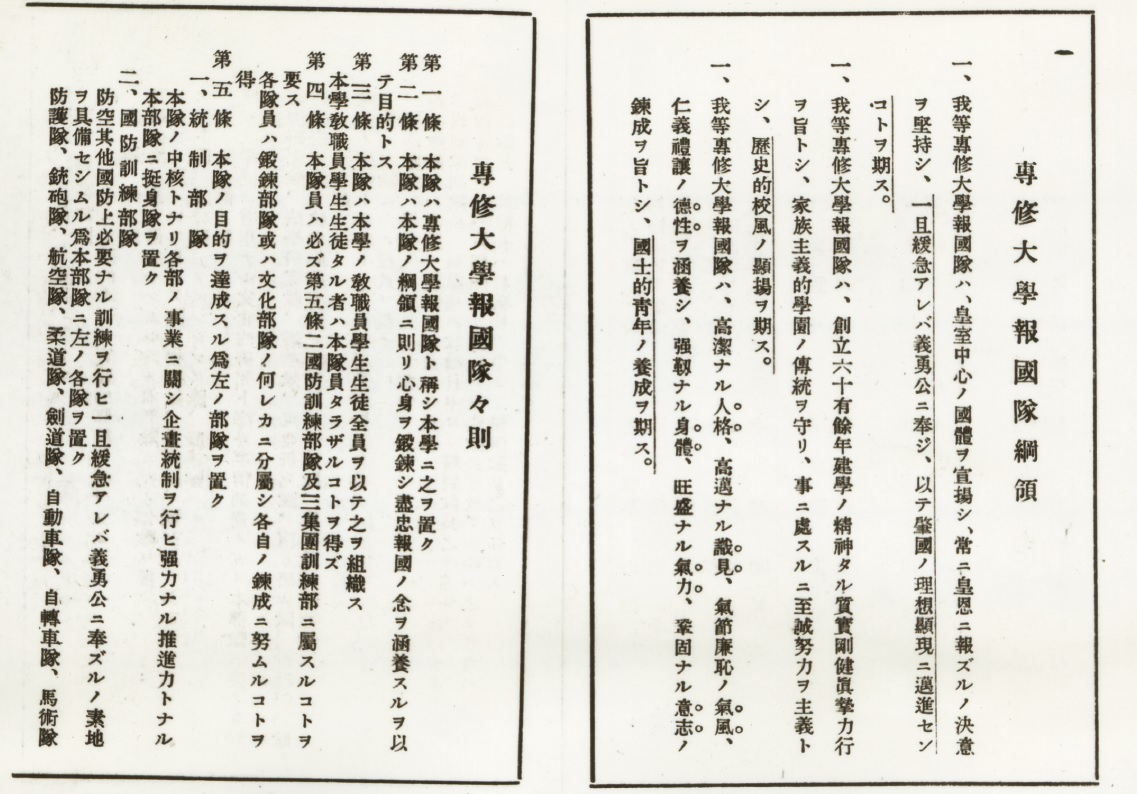 一
專修大學報國隊綱領
一、我等專修大學報國隊ハ、皇室中心ノ國體ヲ宣揚シ、常ニ皇恩ニ報ズルノ決意
ヲ堅持シ、一旦緩急アレバ義勇公ニ奉ジ、以テ肇國ノ理想顯現ニ邁進セン
コトヲ期ス。
一、我等專修大學報國隊ハ、創立六十有餘年建學ノ精神タル質實剛健眞摯力行
ヲ旨トシ、家族主義的學園ノ傳統ヲ守リ、事ニ處スルニ至誠努力ヲ主義ト
シ、歷史的校風ノ顯揚ヲ期ス。
一、我等專修大學報國隊ハ、高潔ナル人格、高邁ナル識見、氣節廉恥ノ氣風、
仁義禮讓ノ德性ヲ涵養シ、强靱ナル身體、旺盛ナル氣力、鞏固ナル意志ノ
鍊成ヲ旨トシ、國士的靑年ノ養成ヲ期ス。
專修大學報國隊々則
第一條 本隊ハ專修大學報國隊ト稱シ本學ニ之ヲ置ク
第二條 本隊ハ本隊ノ綱領ニ則リ心身ヲ鍛鍊シ盡忠報國ノ念ヲ涵養スルヲ以
テ目的トス
第三條 本隊ハ本學ノ敎職員學生生徒全員ヲ以テ之ヲ組織ス
本學敎職員學生生徒タル者ハ本隊員タラザルコトヲ得ズ
第四條 本隊員ハ必ズ第五條二國防訓練部隊及三集團訓練部ニ屬スルコトヲ
要ス
各隊員ハ鍛鍊部隊或ハ文化部隊ノ何レカニ分屬シ各自ノ鍊成ニ努ムルコトヲ
得
第五條 本隊ノ目的ヲ達成スル爲左ノ部隊ヲ置ク
一、統制部隊
本隊ノ中核トナリ各部ノ事業ニ關シ企畫統制ヲ行ヒ强力ナル推進力トナル
本部隊ニ挺身隊ヲ置ク
二、國防訓練部隊
防空其他國防上必要ナル訓練ヲ行ヒ一旦緩急アレバ義勇公ニ奉ズルノ素地
ヲ具備セシムル爲本部隊ニ左ノ各隊ヲ置ク
防護隊、銃砲隊、航空隊、柔道隊、劍道隊、自動車隊、自轉車隊、馬術隊